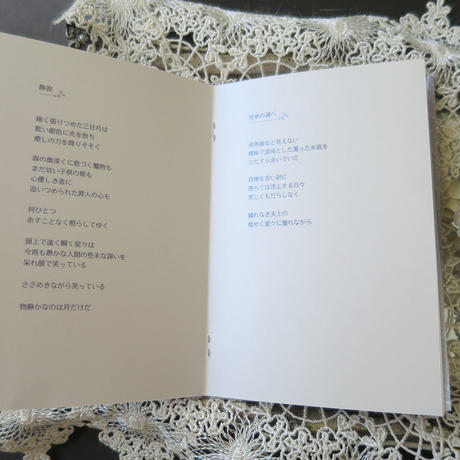 静寂
細く張りつめた三日月は
眩い銀色に光を放ち
癒しの力を降りそそぐ
森の奥深くに息づく魔物も
まだ幼い子供の頬も
心優しき者に
追いつめられた罪人の心も
何ひとつ
余すことなく照らしてゆく
頭上で遠く瞬く星々は
今宵も愚かな人間の些末な諍いを
呆れ顔で笑っている
さざめきながら笑っている
物静かなのは月だけだ
の調べ
境界線など見えない
曖昧で混沌とした濁った水底を
ひたすら泳いでいた
を言い訳に
堕ちては浮上する日々
美しくもだらしなく
穢れなき天上の
煌めく星々に憧れながら